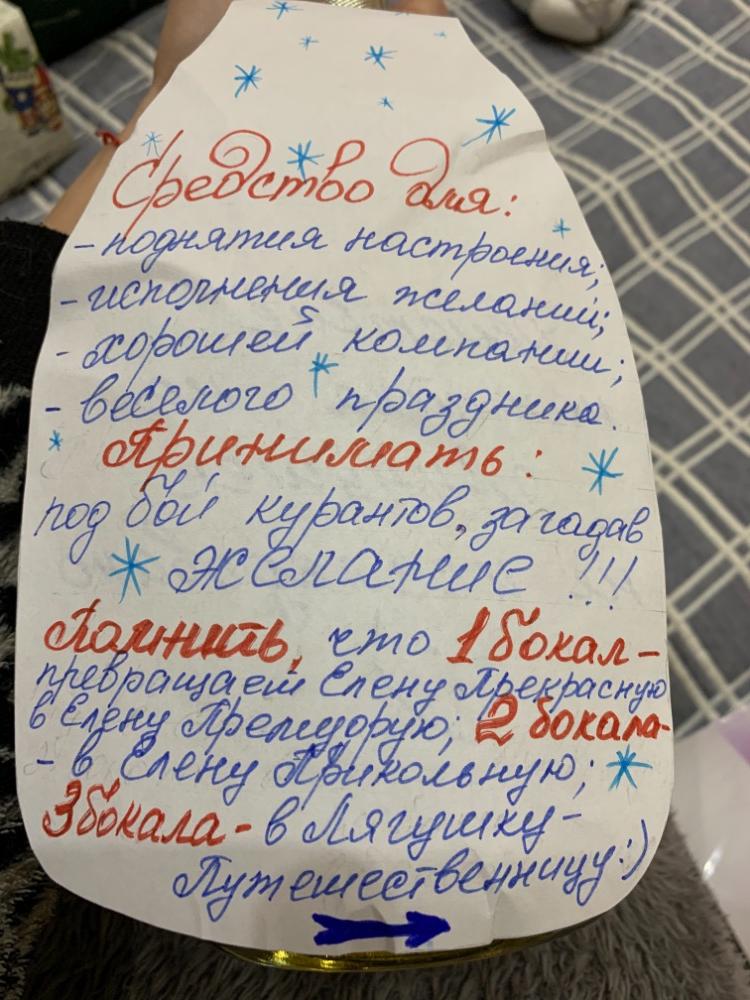 Средство для:
- поднятия настроения;
- исполнения желаний;
- хорошей компании;
- веселого праздника.
Принимать:
под бой курантов, загадав
желание!!!
Помнить, что 1 бокал -
превращает Елену Прекрасную
в Елену Премудрую; 2 бокала -
- в Елену Прикольную;
3 бокала - в Лягушку -
Путешественницу:)